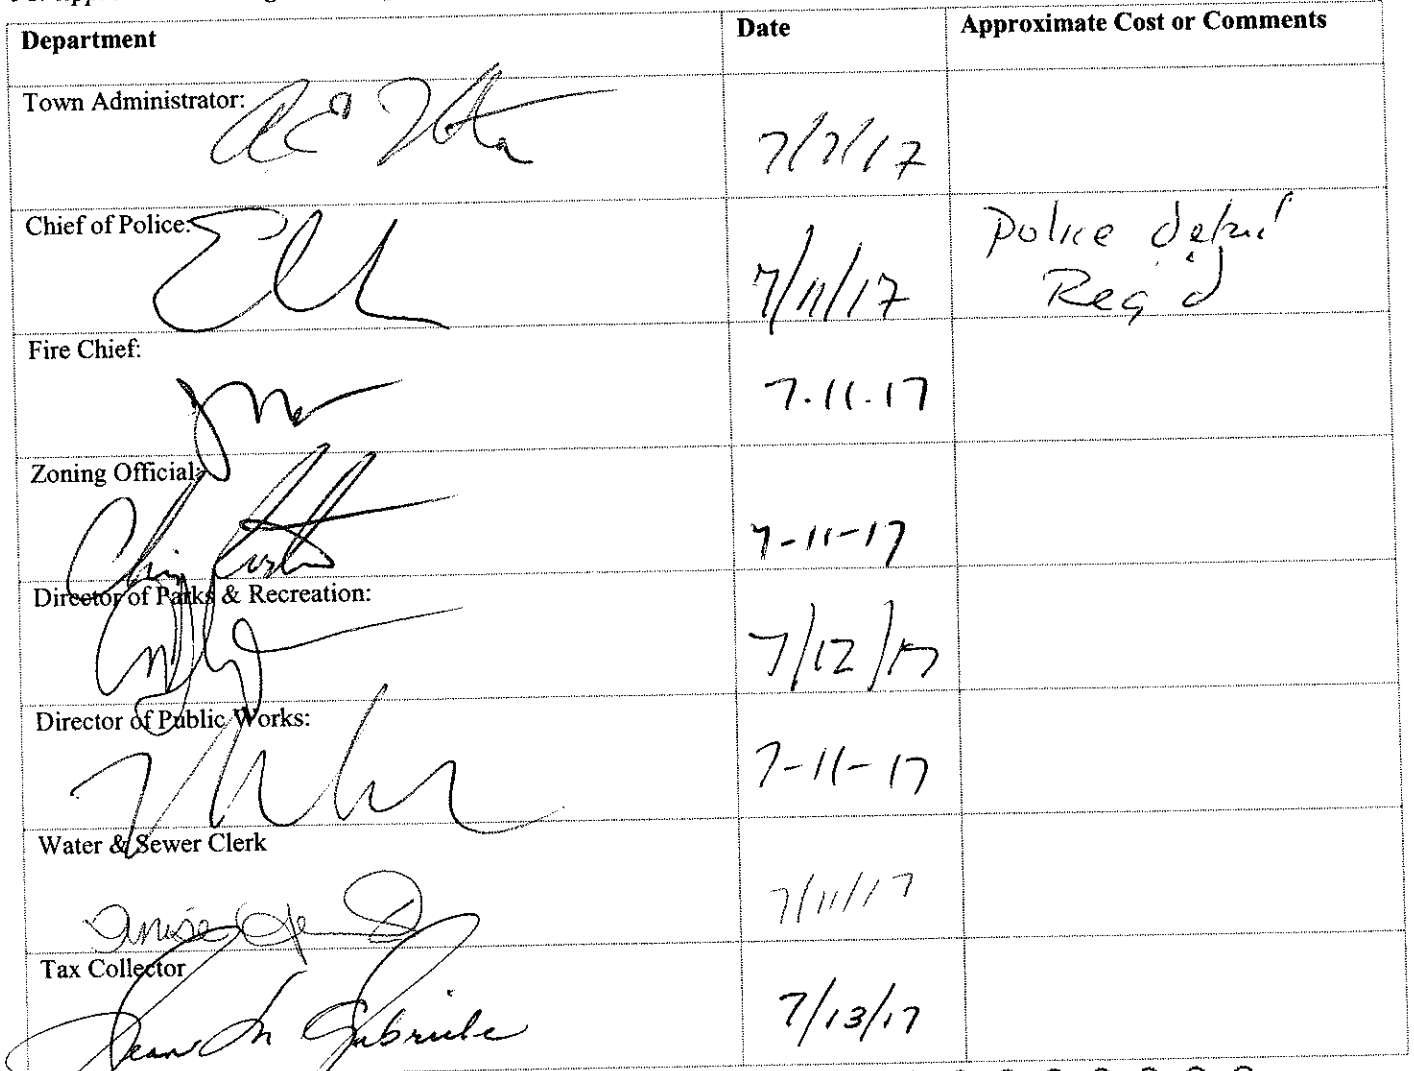 Department Date Approximate Cost or Comments
Town Administrator: 7/7/17
Chief of Police: 7/11/17 Police detail
Req'd
Fire Chief: 7.11.17
Zoning Official: 7-11-17
Director of Parks & Recreation: 7/12/17
Director of Public Works: 7-11-17
Water & Sewer Clerk 7/11/17
Tax Collector 7/13/17